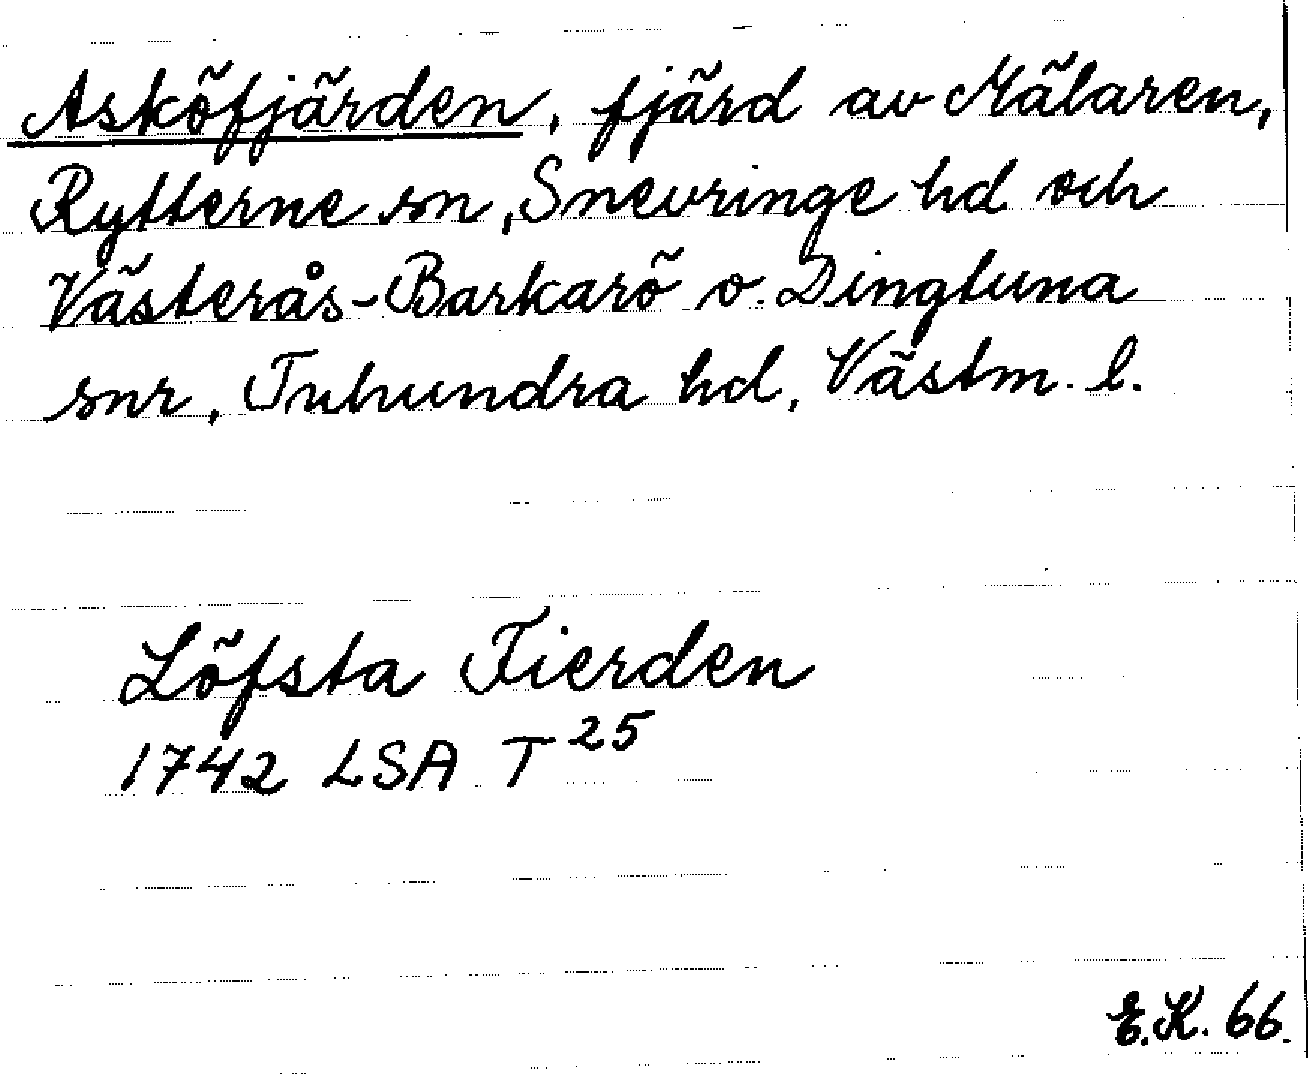 Asköfjärden, fjärd av Mälaren,
Rytterne sn, Snevringe hd och
Västerås-Barkarö o. Dingtuna
snr, Tuhundra hd, Västm. l.
Löfsta Fierden
1742 LSA T 25
E.K. 66.